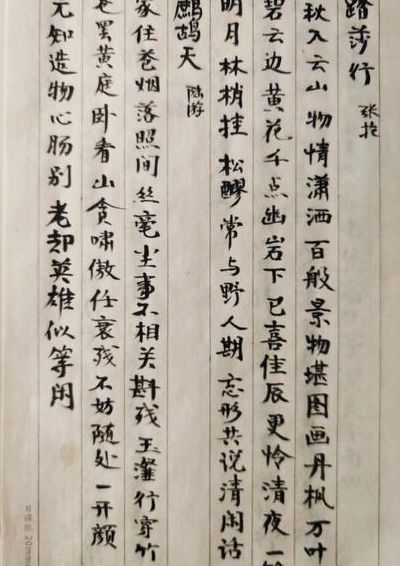 踏莎行 张抡
秋入云山物情潇洒百般景物堪图画丹枫万叶
碧云边黄花千点幽岩下已喜佳辰更怜清夜一
明月林梢挂松醪常与野人期忘形共说清闲话
鹧鸪天 陆游
家住苍烟落照间丝毫尘事不相关斟残玉瀣行穿竹
卷罢黄庭卧看山贪啸傲任衰残不妨随处一开颜
元知造物心肠别老却英雄似等闲
20mm